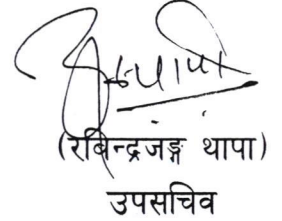 (रविन्द्रजङ्ग थापा)
उपसचिव